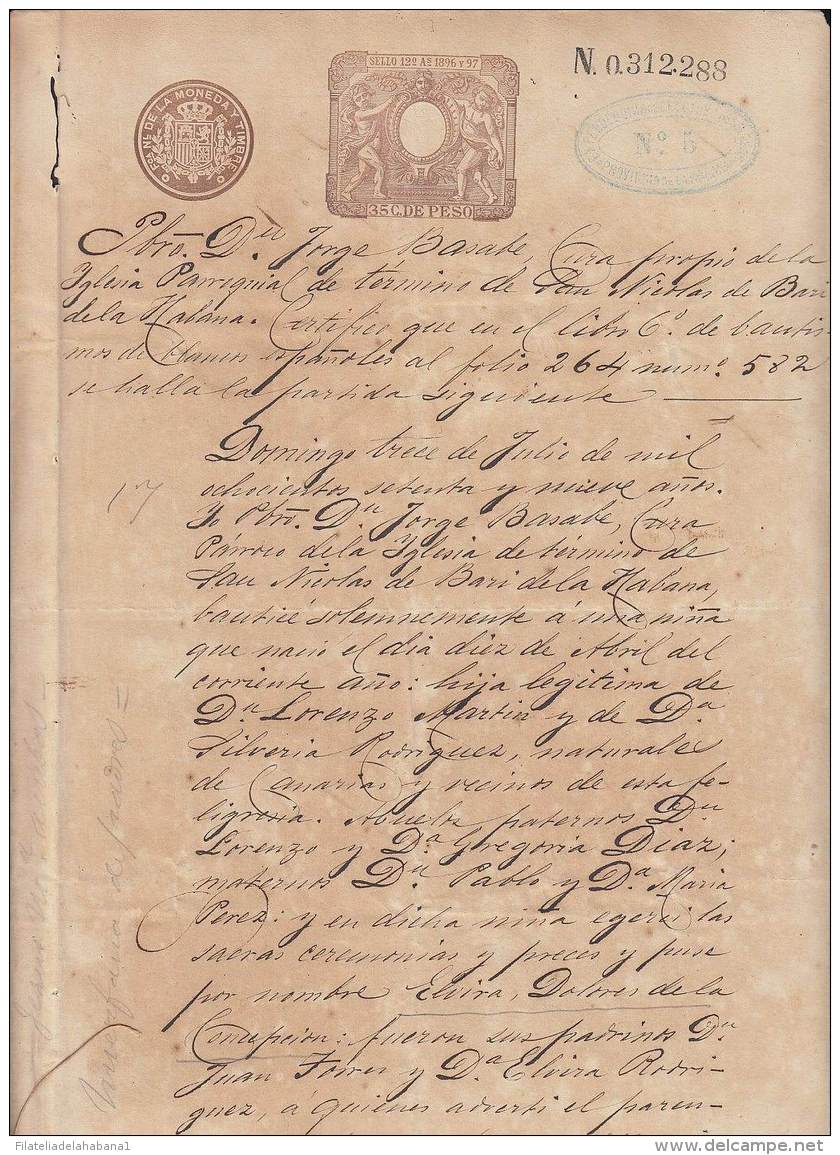 SELLO 12º Aˢ 1896 y 97
N. 0.312.288
Fca NL DE LA MONEDA Y TIMBRE
Nº 5
35 C. DE PESO
Pbro. Dn. Jorge Basabe, Cura propio de la
Yglesia Parroquial de termino de San Nicolas de Bari
de la Habana. Certifico que en el libro 6º de bautis
mos de blancos españoles al folio 264 numº 582
se halla la partida siguiente
Domingo trece de Julio de mil
ochocientos setenta y nueve años.
Yo Pbro. Dn Jorge Basabe, Cura
Párroco de la Yglesia de término de
San Nicolas de Bari de la Habana,
bauticé solemnemente á una niña
que nació el dia diez de Abril del
corriente año: hija legitima de
Dn Lorenzo Martin y de Da
Silveria Rodriguez, naturales
de Canarias y vecinos de esta fe-
ligresia. Abuelos paternos Dn
Lorenzo y Da Gregoria Diaz;
maternos Dn Pablo y Da Maria
Perez: y en dicha niña egerci las
sacras ceremonias y preces y puse
por nombre Elvira, Dolores de la
Concepcion: fueron sus padrinos Dn
Juan Torres y Da Elvira Rodri-
guez, á quienes adverti el paren-
17
de padres =
Filateliadelahabana1
www.delcampe.net